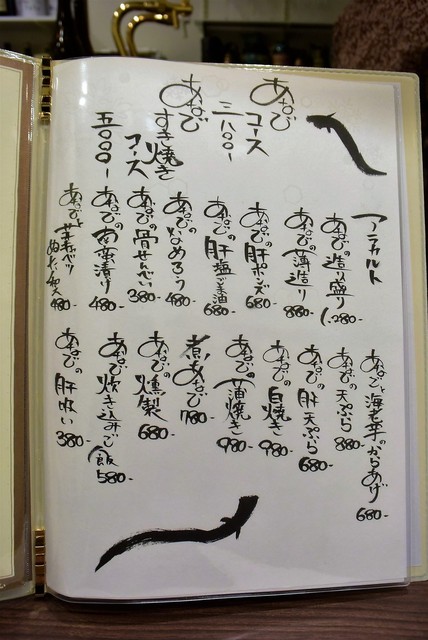 あなご
コース
三八〇〇-
あなご
すき焼き
コース
五〇〇〇-
アラカルト
あなごの造り盛り
1,280-
あなごの薄造り
880-
あなごの肝ポンズ
680-
あなごの肝塩ごま油
680-
あなごのなめろう
480-
あなごの骨せんべい
380-
あなごの南蛮漬け
480-
あなごと
480-
あなごと海老芋のからあげ
680-
あなごの天ぷら
880-
あなごの肝天ぷら
680-
あなごの白焼き
980-
あなごの蒲焼き
980-
煮あなご
780-
あなごの燻製
680-
あなご炊き込みご飯
580-
あなごの肝吸い
380-